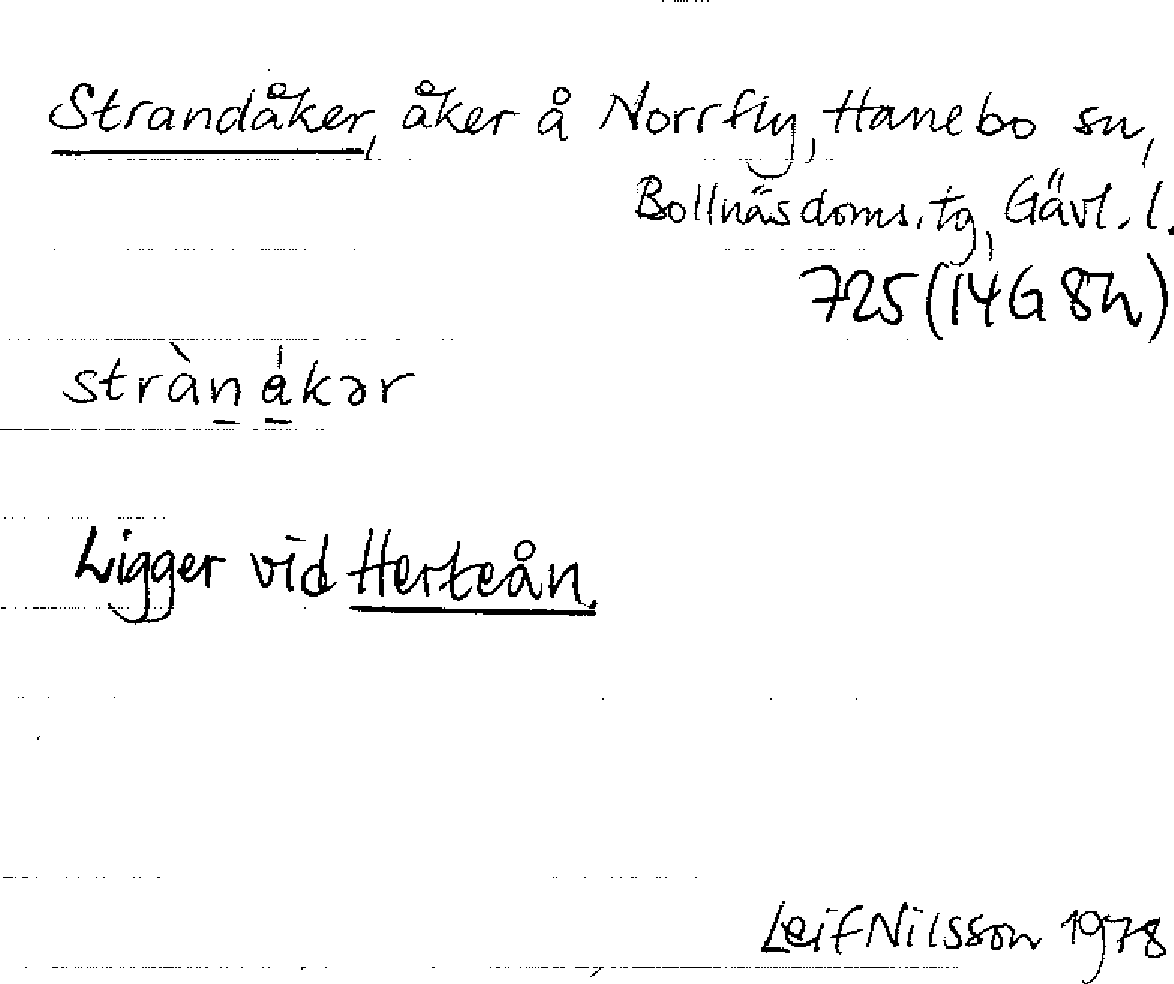 Strandåker, åker å Norrfly, Hanebo sn,
Bollnäs doms. tg, Gävl. l.
725 (14 G 8h)
stràn åkər
Ligger vid Herteån.
Leif Nilsson 1978